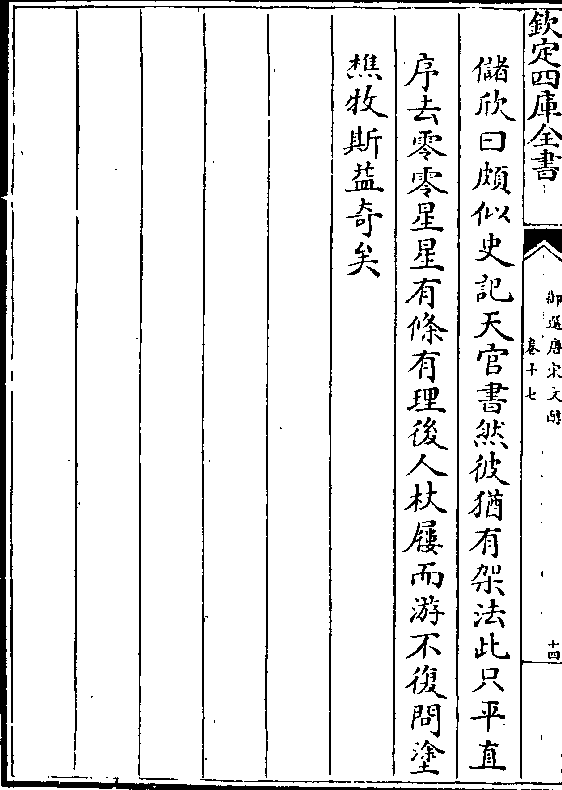 欽定四庫全書
御選唐宋文醇
卷十七
十四
儲欣曰頗似史記天官書然彼猶有架法此只平直
序去零零星星有條有理後人杖屨而游不復問塗
樵牧斯益奇矣